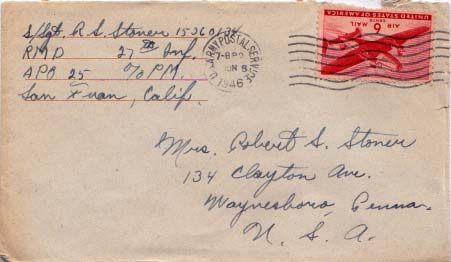 S/Sgt. R. S. Stoner 15360194
RMD 27th Inf.
APO 25 c/o P.M.
San Fran, Calif.
U.S. ARMY POSTAL SERVICE
JUN 8
1946
UNITED STATES OF AMERICA
6 CENTS
AIR MAIL
Mrs. Robert S. Stoner
134 Clayton Ave.
Waynesboro, Penna.
U. S. A.